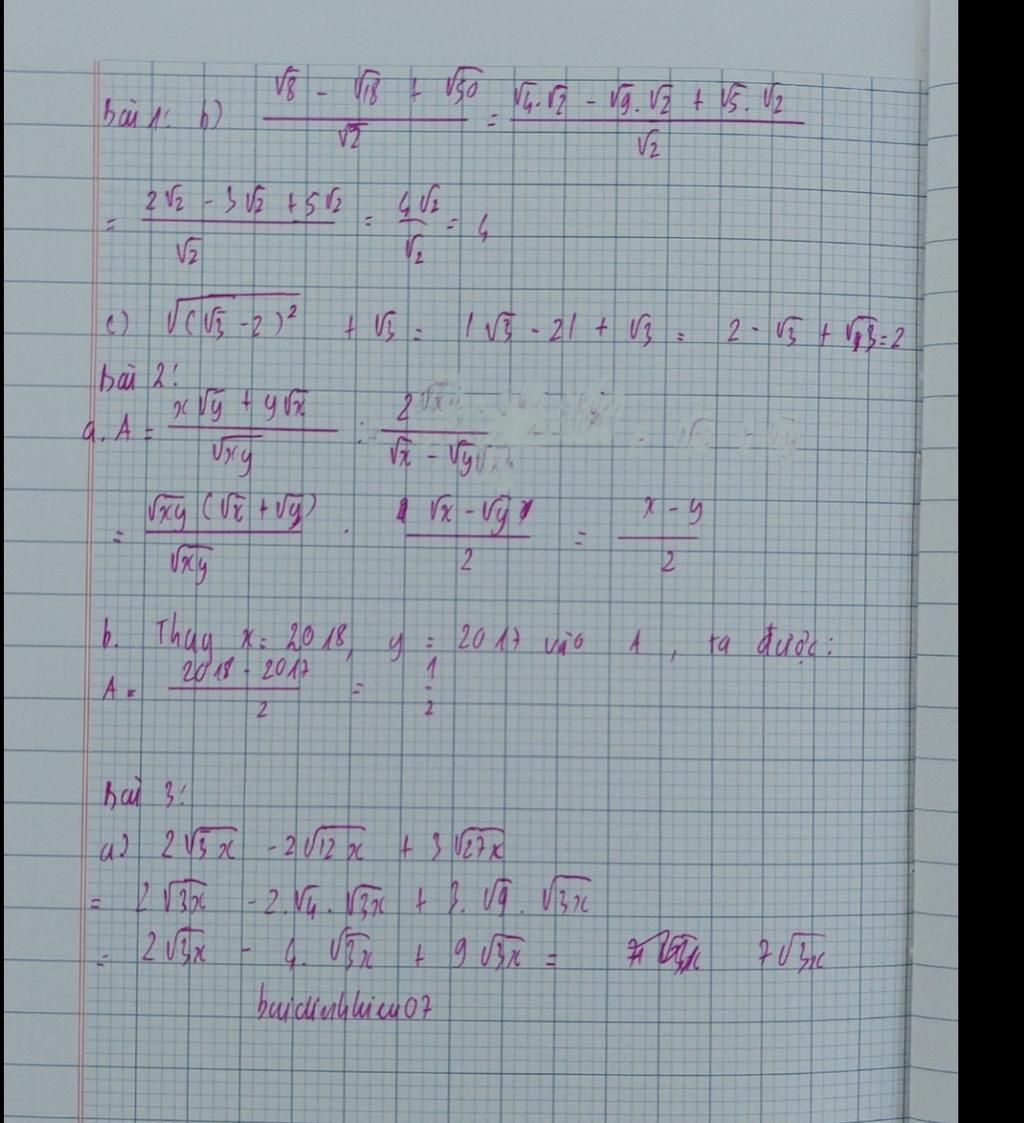 Bài 1: b) (√8 - √18 + √50)/√2 = (√4.√2 - √9.√2 + √5.√2)/√2
= (2√2 - 3√2 + 5√2)/√2 = 4√2/√2 = 4
c) √((√3 - 2)²) + √3 = |√3 - 2| + √3 = 2 - √3 + √3 = 2
Bài 2:
a. A = (x√y + y√x)/√xy : 2/(√x - √y)
= √xy(√x + √y)/√xy . (√x - √y)/2 = (x - y)/2
b. Thay x = 2018, y = 2017 vào A, ta được:
A = (2018 - 2017)/2 = 1/2
Bài 3:
a) 2√3x - 2√12x + 3√27x
= 2√3x - 2.√4.√3x + 3.√9.√3x
= 2√3x - 4.√3x + 9√3x = 7√3x